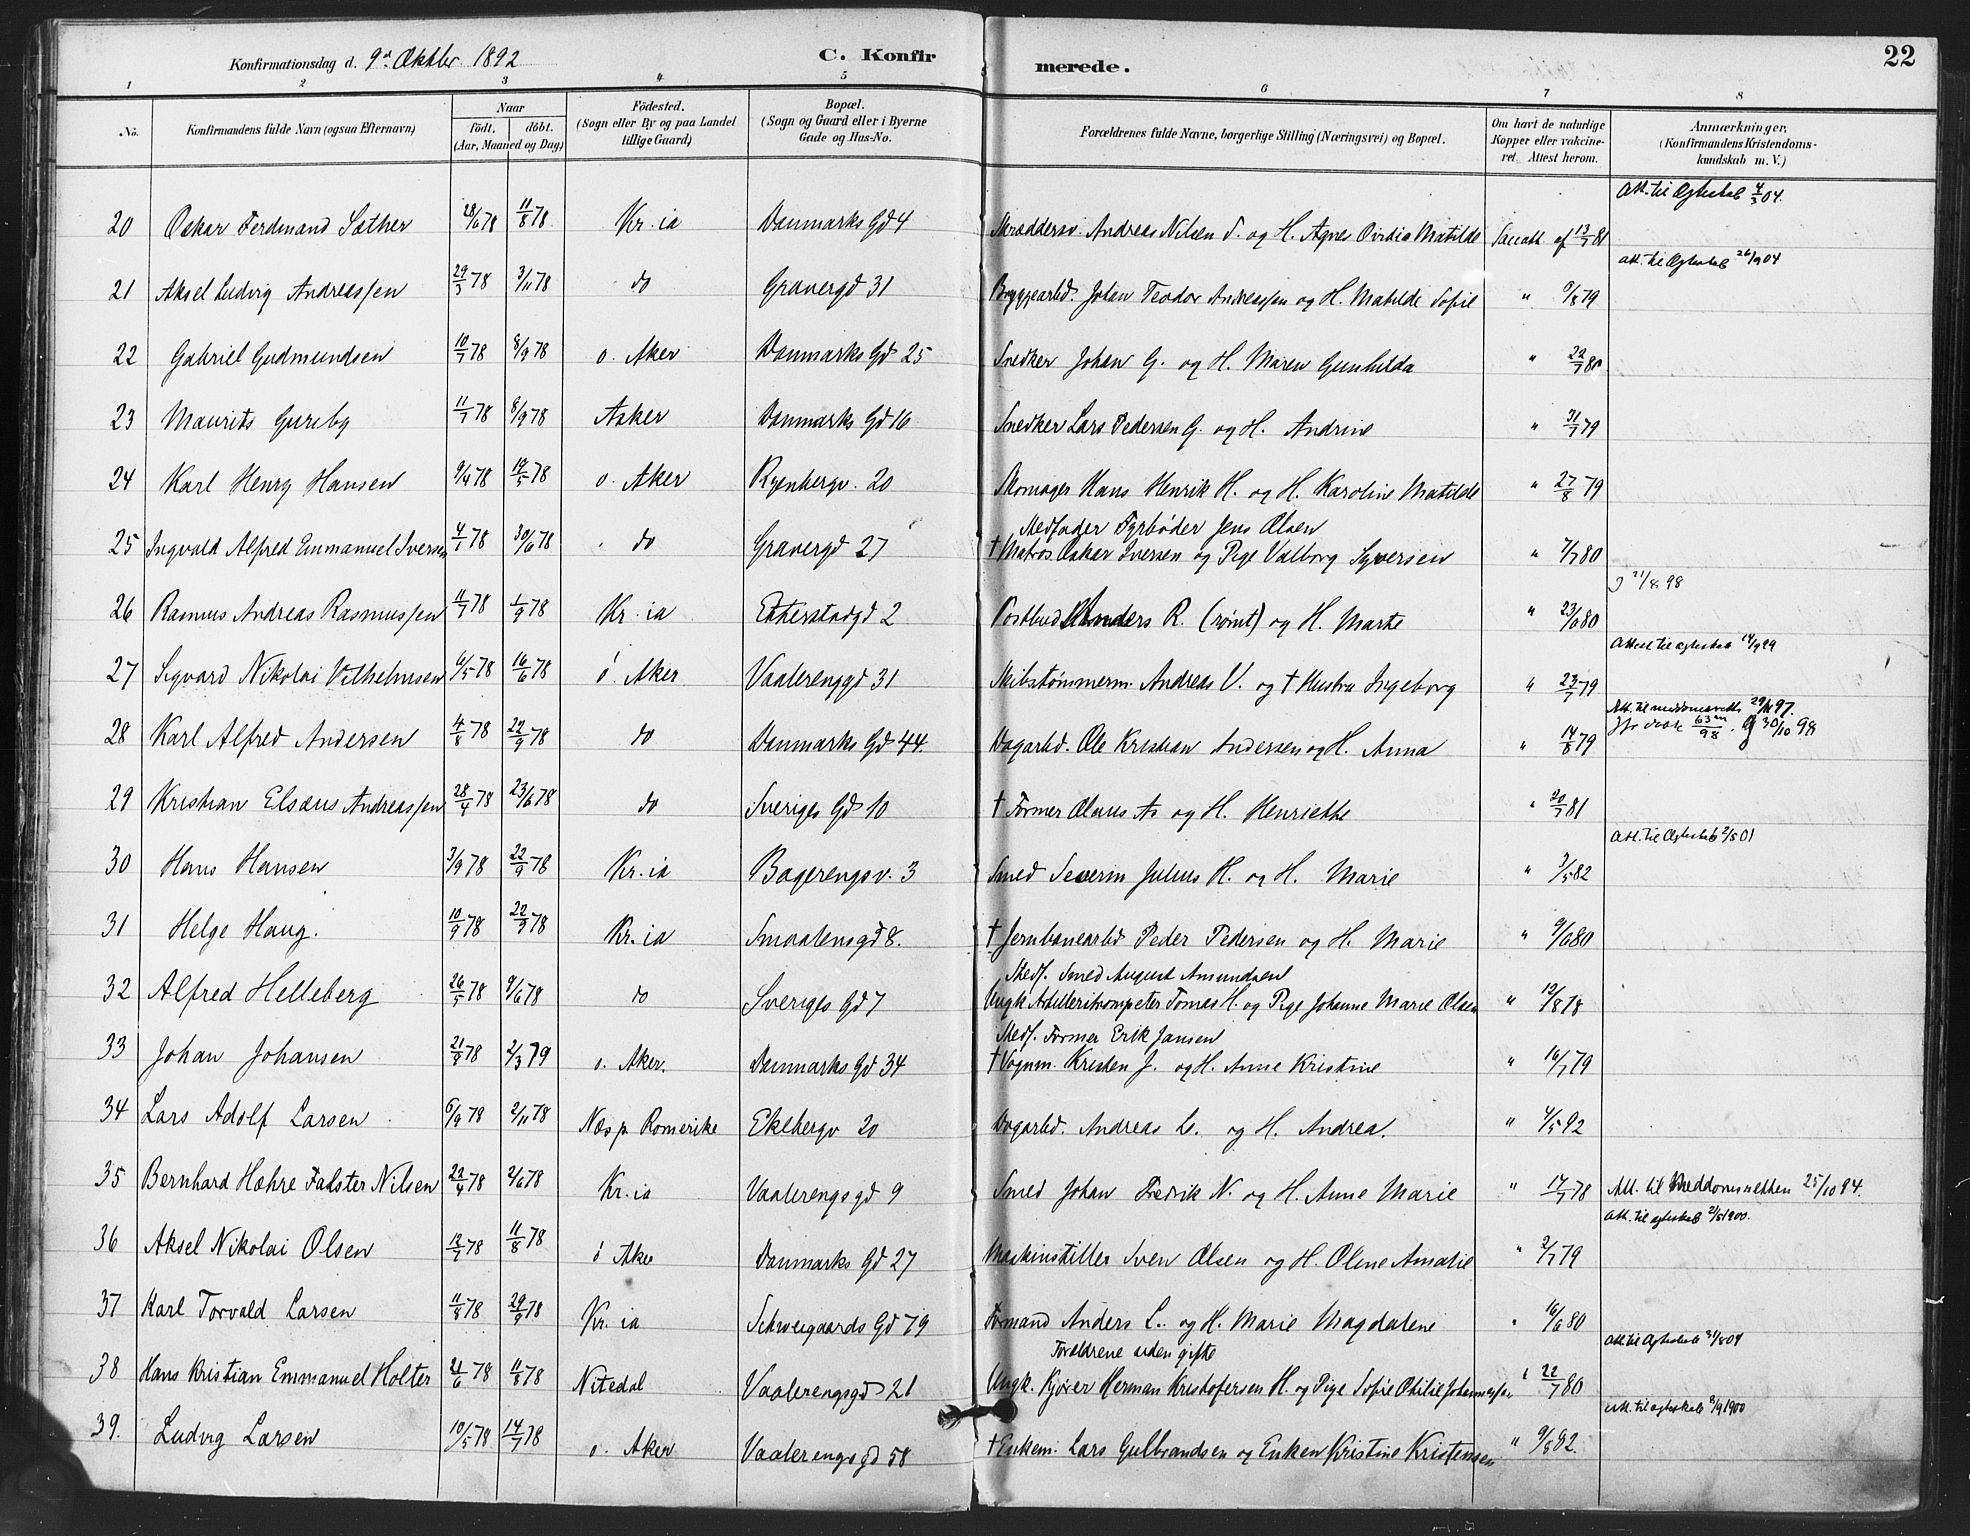 Konfirmationsdag d. 9de Oktbr. 1892 C. Konfirmerede. 22
1 2 3 4 5 6 7 8
No. Konfirmandens fulde Navn (ogsaa Efternavn) Naar födt. döbt. (Aar, Maaned og Dag) Födested. (Sogn eller By og paa Landet tillige Gaard) Bopæl. (Sogn og Gaard eller i Byerne Gade og Hus-No. Forældrenes fulde Navne, borgerlige Stilling (Næringsvei) og Bopæl. Om havt de naturlige Kopper eller vakcineret. Attest herom. Anmærkninger. (Konfirmandens Kristendomskundskab m. V.)
Att. til Ægteskab 4/3 04.
20 Oskar Ferdinand Sæther 28/6 78 11/8 78 Kr.ia Danmarks Gd 4 Skræddersv. Andreas Nilsen S. og H. Agnes Ovidia Matilde Vaccatt. af 13/7 81
Att. til Ægteskab 26/9 04
21 Aksel Ludvig Andreassen 29/3 78 3/11 78 do Gravergd 31 Bryggearbd. Johan Teodor Andreassen og H. Matilde Sofie " 9/8 79
22 Gabriel Gudmundsen 10/7 78 8/9 78 ö. Aker Danmarks Gd 25 Snedker Johan G. og H. Maren Gunhilda " 22/7 80
23 Maurits Gureby 11/7 78 8/9 78 Asker Danmarks Gd 16 Snedker Lars Pedersen G. og H. Andrine " 31/7 79
24 Karl Henry Hansen 9/4 78 19/5 78 ö. Aker Ryenbergv. 20 Skomager Hans Henrik H. og H. Karoline Matilde " 27/8 79
Stedfader Fyrbøder Jens Olsen
25 Ingvald Alfred Emmanuel Iversen 4/1 78 30/6 78 do Gravergd 27 † Matros Oskar Iversen og Pige Valborg Syversen " 7/7 80
21/8 98
26 Rasmus Andreas Rasmussen 11/7 78 1/9 78 Kr.ia Etterstadgd 2 Postbud Anders R. (rømt) og H. Marte " 23/6 80
Attest til ægteskab 14/9 99
27 Sigvard Nikolai Vilhelmsen 6/5 78 16/6 78 ö. Aker Vaalerenggd 31 Skibstømmerm. Andreas V. og † Hustru Ingeborg " 23/7 79
Att. til meddomsrett 29/11 97.
28 Karl Alfred Andersen 4/8 78 22/9 78 do Danmarks Gd 44. Dagarbd. Ole Kristian Andersen og H. Anna " 14/8 79 63/98. og 30/10 98
29 Kristian Elsæus Andreassen 28/4 78 23/6 78 do Sveriges Gd 10 † Former Olaus As og H. Henriette " 20/7 81
Att. til Ægteskab 2/5 01
30 Hans Hansen 3/9 78 22/9 78 Kr.ia Bagerengsv. 3 Smed Severin Julius H. og H. Marie " 3/5 82
31 Helge Haug. 10/9 78 22/9 78 Kr.ia Smaalensgd 8. † Jernbanearbd Peder Pedersen og H. Marie " 9/6 80
Stedf. Smed August Amundsen
32 Alfred Helleberg 26/5 78 9/6 78 do Sveriges Gd 7 Ungk. Artilleritrompeter Tomas H. og Pige Johanne Marie Olsen " 12/8 78
Stedf. Former Erik Jansen
33 Johan Johansen 21/8 78 2/3 79 ö. Aker. Danmarks Gd 34 † Vognm. Kristen J. og H. Anne Kristine " 16/7 79
34 Lars Adolf Larsen 6/9 78 2/11 78 Næs p. Romerike Ekebergv 20 Dagarbd. Andreas L. og H. Andrea. " 4/5 92
35 Bernhard Hæhre Falster Nilsen 22/4 78 2/6 78 Kr.ia Vaalerengsgd 9 Smed Johan Fredrik N. og H. Anne Marie " 17/7 78 Att. til Meddomsretten 25/10 94.
Att. til ægteskab 2/5 1900.
36 Aksel Nikolai Olsen 12/7 78 11/8 78 ö Aker Danmarks Gd 27 Maskinstiller Sven Olsen og H. Oline Amalie " 2/7 79
37 Karl Torvald Larsen 11/8 78 29/9 78 Kr.ia Schweigaards Gd 79 Formand Anders L. og H. Marie Magdalene " 16/6 80
Forældrene siden gifte Att. til Ægteskab 31/8 04
38 Hans Kristian Emmanuel Holter 21/6 78 11/8 78 Nitedal Vaalerengsgd 21 Ungk. Kjører Herman Kristofersen H. og Pige Sofie Otilie Johannessen " 22/7 80
Att. til ægteskab 8/9 1900
39. Ludvig Larsen 10/5 78 14/7 78 ö. Aker Vaalerengsgd 58 † Enkem. Lars Gulbrandsen og Enken Kristine Kristensen " 9/8 82.